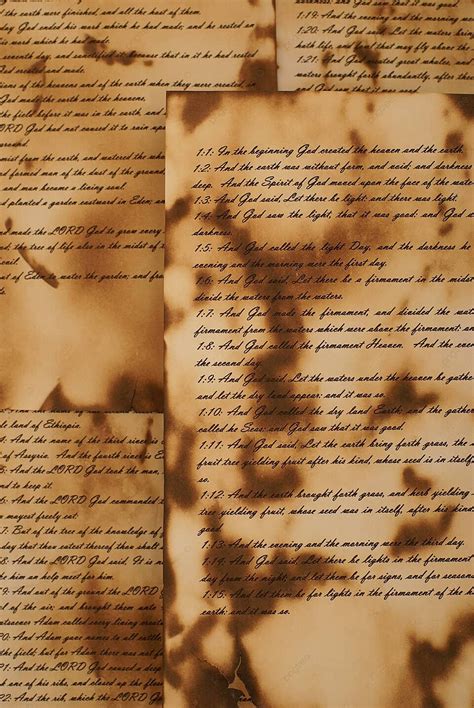 earth were finished, and all the host of them.
God ended his work which he had made; and he rested on
his work which he had made.
seventh day, and sanctified it: because that in it he had rested
God created and made.
of the heavens and of the earth when they were created, in
God made the earth and the heavens,
the field before it was in the earth, and
LORD God had not caused it to rain upon
ground.
mist from the earth, and watered the whole
formed man of the dust of the ground,
and man became a living soul.
planted a garden eastward in Eden; and
made the LORD God to grow every
the tree of life also in the midst of
of Eden to water the garden; and from
1:19: And the evening and the morning
1:20: And God said, Let the waters
hath life, and fowl that may fly above the
1:21: And God created great whales, and
waters brought forth abundantly, after
and
1:1: In the beginning God created the heaven and the earth.
1:2: And the earth was without form, and void; and darkness
deep. And the Spirit of God moved upon the face of the
1:3: And God said, Let there be light: and there was light.
1:4: And God saw the light, that it was good: and God
darkness.
1:5: And God called the light Day, and the darkness he
evening and the morning were the first day.
1:6: And God said, Let there be a firmament in the midst
divide the waters from the waters.
1:7: And God made the firmament, and divided the
firmament from the waters which were above the firmament:
1:8: And God called the firmament Heaven. And the
the second day.
1:9: And God said, Let the waters under the heaven be
and let the dry land appear: and it was so.
1:10: And God called the dry land Earth; and the
called he Seas: and God saw that it was good.
1:11: And God said, Let the earth bring forth grass, the
fruit tree yielding fruit after his kind, whose seed is in itself,
so.
1:12: And the earth brought forth grass, and herb yielding
tree yielding fruit, whose seed was in itself, after his kind:
good.
1:13: And the evening and the morning were the third day.
1:14: And God said, Let there be lights in the firmament
day from the night; and let them be for signs, and for
1:15: And let them be for lights in the firmament of the
earth: and it was so.
land of Ethiopia.
And the name of the third river is
of Assyria. And the fourth river is
And the LORD God took the man,
to keep it.
And the LORD God commanded
mayest freely eat:
7: But of the tree of the knowledge of
day that thou eatest thereof thou shalt
And the LORD God said, It is
him an help meet for him.
9: And out of the ground the LORD
of the air; and brought them unto
whatsoever Adam called every living
20: And Adam gave names to all cattle,
the field; but for Adam there was not
21: And the LORD God caused a deep
one of his ribs, and closed up the flesh
22: And the rib, which the LORD God